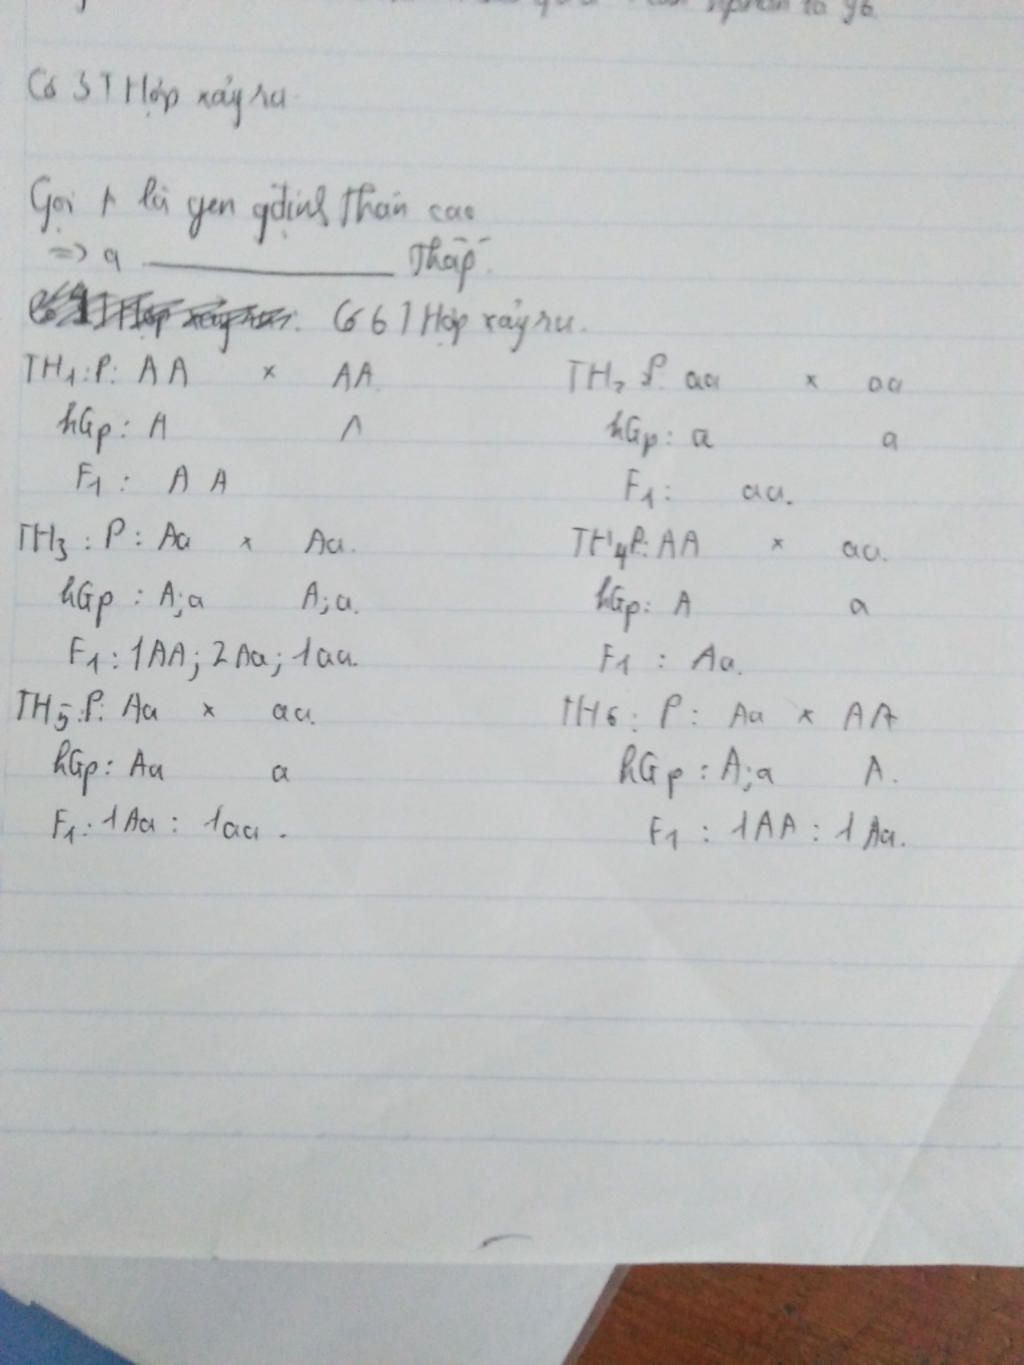 Có 3 T Hợp xảy ra.
Gọi A là gen qđịnh Thân cao
=> a ———— Thấp.
Có 6 T Hợp xảy ra.
TH1: P: AA × AA
hGp: A A
F1: AA
TH2 P: aa × aa
hGp: a a
F1: aa.
TH3: P: Aa × Aa.
hGp: A;a A;a.
F1: 1AA; 2Aa; 1aa.
TH4 P: AA × aa.
hGp: A a
F1: Aa.
TH5: P: Aa × aa.
hGp: Aa a
F1: 1Aa: 1aa.
TH6: P: Aa × AA
hGp: A;a A.
F1: 1AA: 1Aa.